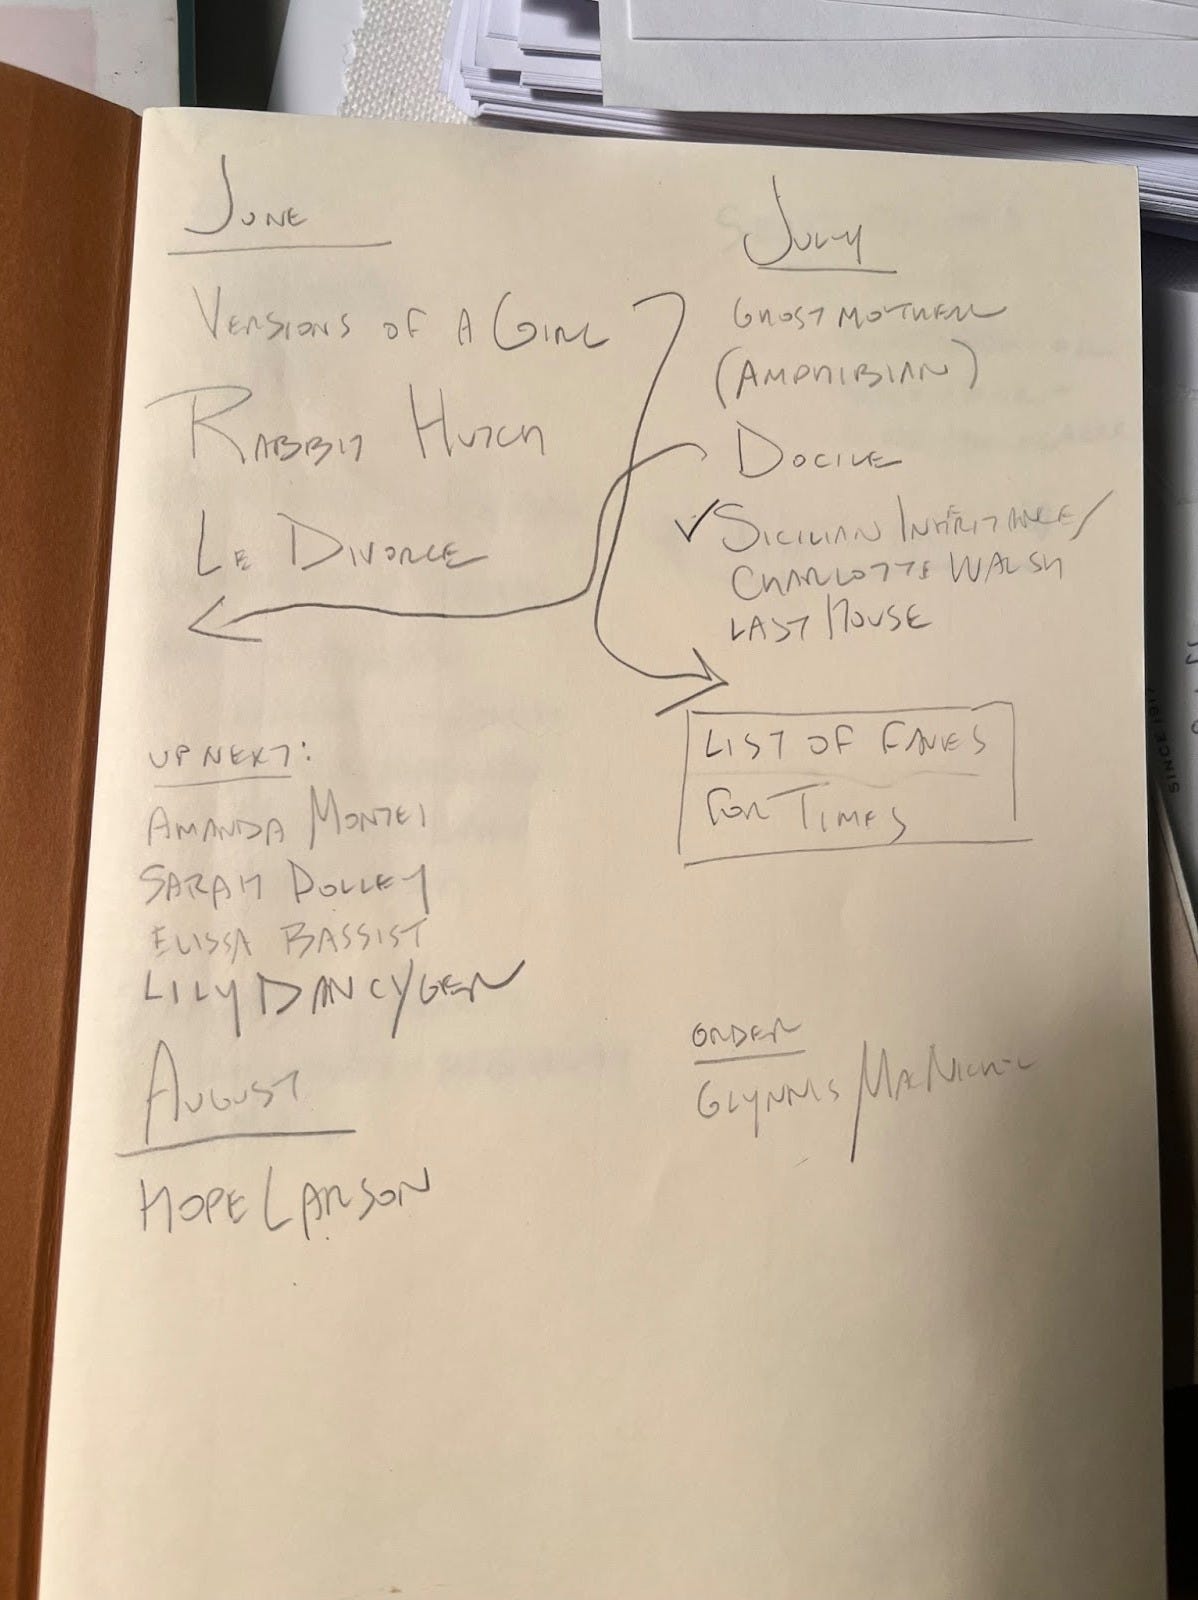 June
Versions of a Girl
Rabbit Hutch
Le Divorce
July
Ghost Mother
(Amphibian)
Docile
✓ Sicilian Inheritance/
Charlotte Walsh
Last House
List of Faves
for Times
Up Next:
Amanda Montei
Sarah Dolley
Elissa Bassist
Lily Dancyger
August
Hope Larson
Order
Glynnis MacNicol